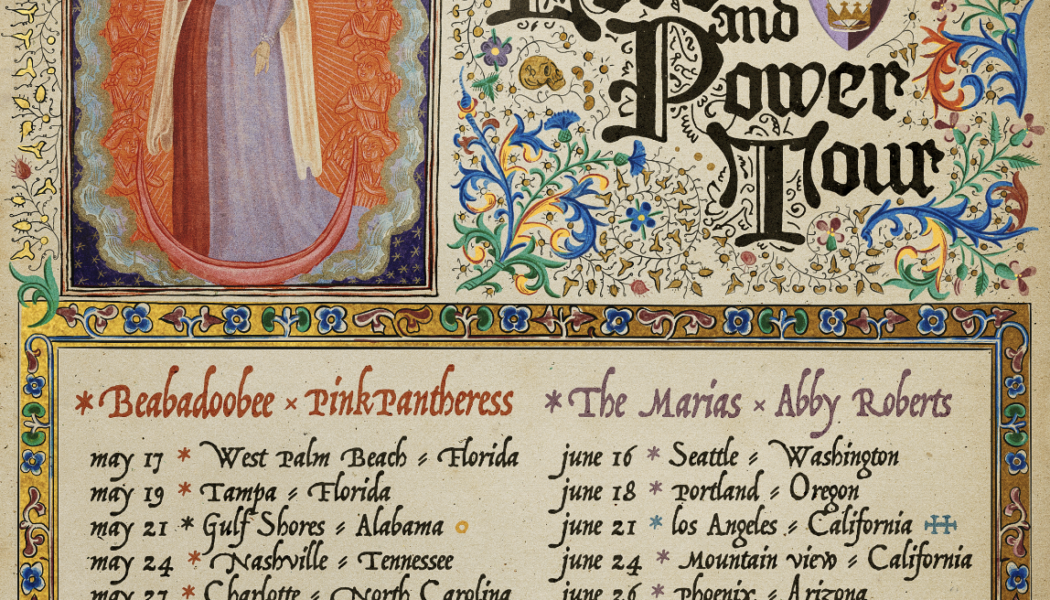 and
Power
Tour
*Beabadoobee × PinkPantheress
may 17 * West Palm Beach = Florida
may 19 * Tampa = Florida
may 21 * Gulf Shores = Alabama
may 24 * Nashville = Tennessee
may 27 * Charlotte = North Carolina
*The Marias × Abby Roberts
june 16 * Seattle = Washington
june 18 * Portland = Oregon
june 21 * los Angeles = California
june 24 * Mountain view = California
june 26 * Phoenix = Arizona